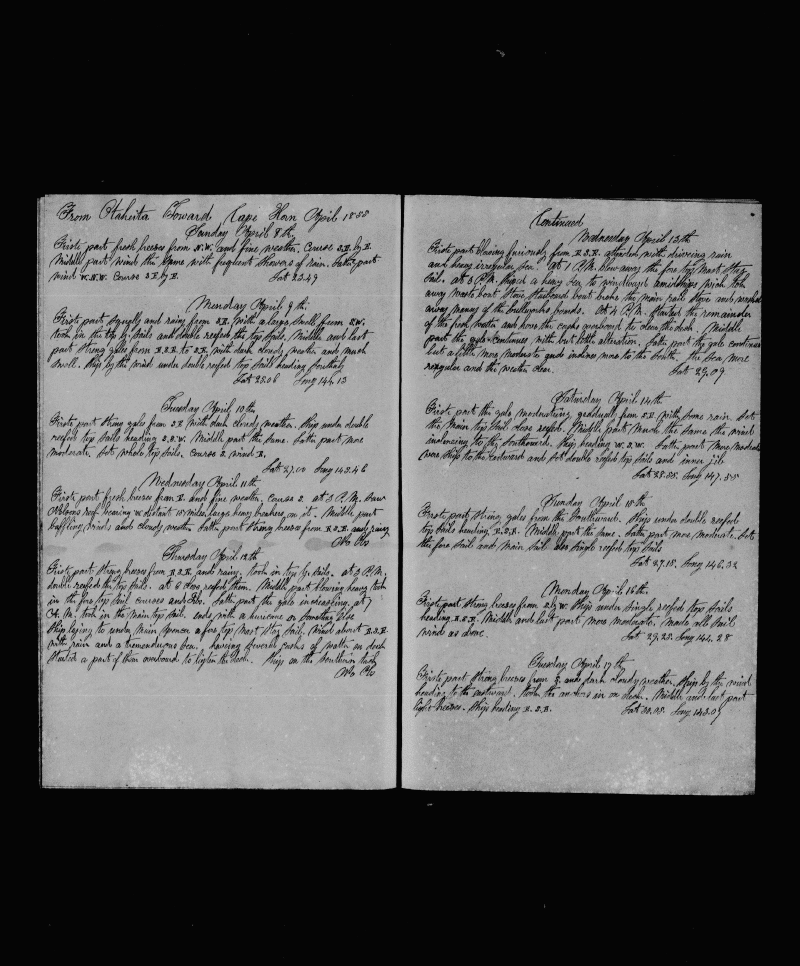 From Otaheita Toward Cape Horn April 1855
Sunday April 8th,
Firste part fresh breezes from N.W. and fine weather. Course S.E. by E.
Middle part winds the same with frequent showers of rain. Latter part
wind W.N.W. Course S.E. by E. Lat 23.49
Monday April 9th.
Firste part squally and rainy from S.E. with a large swell from S.W.
took in the top G. sails and double reefed the top sails. Middle and last
part strong gales from E.S.E. to S.E. with dark cloudy weather and much
swell. Ship by the wind under double reefed top sails heading southerly
Lat 25.06 Long 144.13
Tuesday April 10th.
Firste part strong gales from S.E. with dark cloudy weather. Ship under double
reefed top sails heading S.S.W. Middle part the same. Latter part more
moderate. Set whole top sails. Course S. wind E.
Lat 27.00 Long 145.46
Wednesday April 11th
Firste part fresh breezes from E. and fine weather, course S. at 3 P.M. saw
Nelsons reef bearing W. distant 15 miles, large heavy breakers on it. Middle part
baffling winds and cloudy weather. Latter part strong breezes from E.S.E. and rainy
No Obs
Thursday April 12th
Firste part strong breezes from E.S.E. and rainy. took in top G. sails. at 3 P.M.
double reefed the top sails. at 6 close reefed them. Middle part blowing heavy took
in the fore top sail courses and Jib. Latter part the gale increasing, at 7
A.M. took in the main top sail. Ends with a huricane or something else
Ship lying to under main spencer & fore top mast stay sail. Wind about E.S.E.
with rain and a tremenduous sea. having several casks of water on deck
started a part of them overboard to lighten the deck. Ship on the southern tack
No Obs
Continued
Wednesday April 13th
Firste part blowing furiously from E.S.E. attended with driveing rain
and heavy irregular sea. at 1 P.M. blew away the fore top mast stay
sail. at 3 P.M. shiped a heavy sea to windward amidships wich took
away waste boat stove starboard boat broke the main rail stove and washed
away many of the bullworks boards. at 4 P.M. started the remainder
of the fresh water and hove the casks overboard to clear the deck. Middle
part the gale continues with but little alteration. Latter part the gale continues
but a little more moderate and inclines more to the South. the sea more
reagular and the weather clear. Lat 29.09
Saturday April 14th
Firste part the gale moderating gradually from S.E. with some rain. Set
the main top sail close reefed. Middle part much the same the wind
inclencing to the Southward. Ship heading W.S.W. Latter part more moderate
wore ship to the eastward and set double reefed top sails and inner jib
Lat 28.55. Long 147.55
Sunday April 15th
Firste part strong gales from the Southward. Ship under double reefed
top sails heading E.S.E. Middle part the same. Latter part more moderate. Set
the fore sail and main sail and single reefed top sails
Lat 29.18. Long 146.32
Monday April 16th.
Firste part strong breezes from S. by W. Ship under single reefed top sails
heading E.S.E. Middle and last part more moderate. Made all sail
wind as above. Lat 29.25. Long 144.28
Tuesday April 17th
Firste part strong breezes from S. and dark cloudy weather. Ship by the wind
heading to the eastward. took the anchors in on deck. Middle and last part
light breezes. Ship heading E.S.E. Lat 30.05. Long 143.09